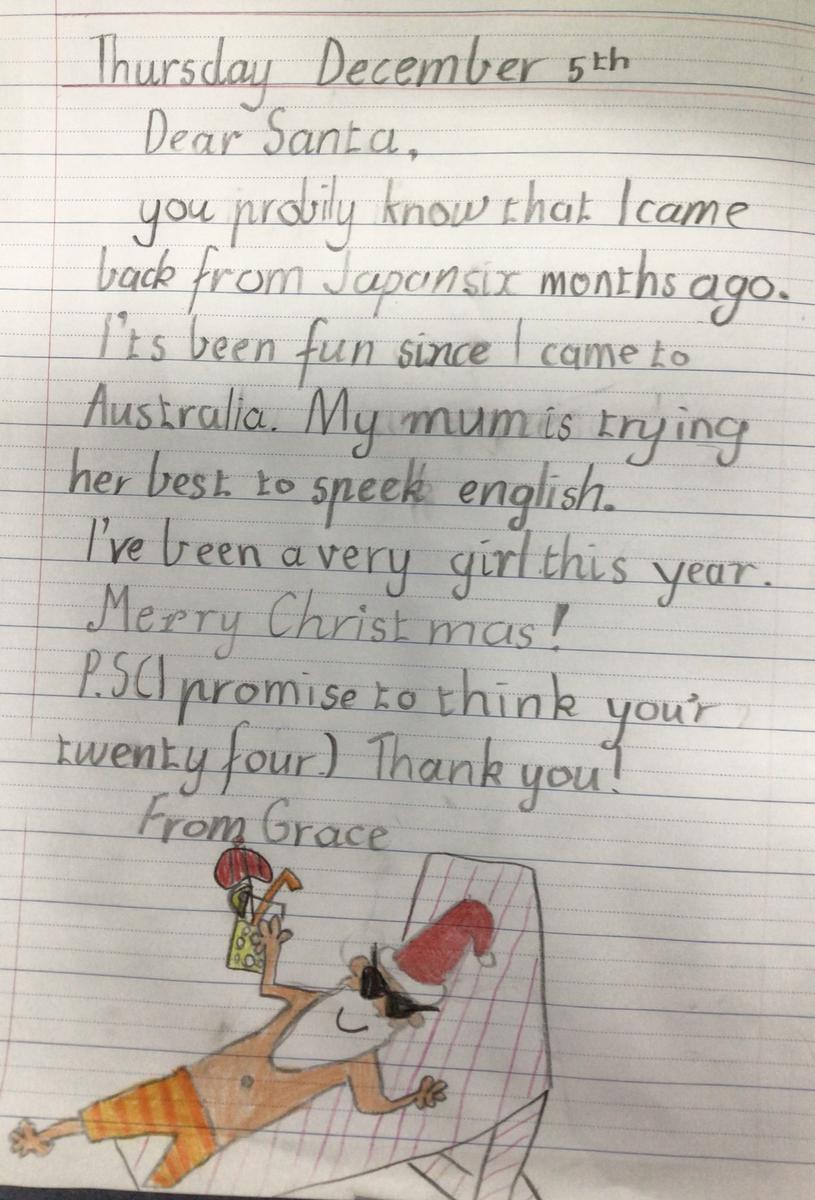 Thursday December 5th
Dear Santa,
you probily know that I came
back from Japan six months ago.
I'ts been fun since I came to
Australia. My mum is trying
her best to speek english.
I've been a very girl this year.
Merry Christmas!
P.S (I promise to think you'r
twenty four) Thank you!
From Grace